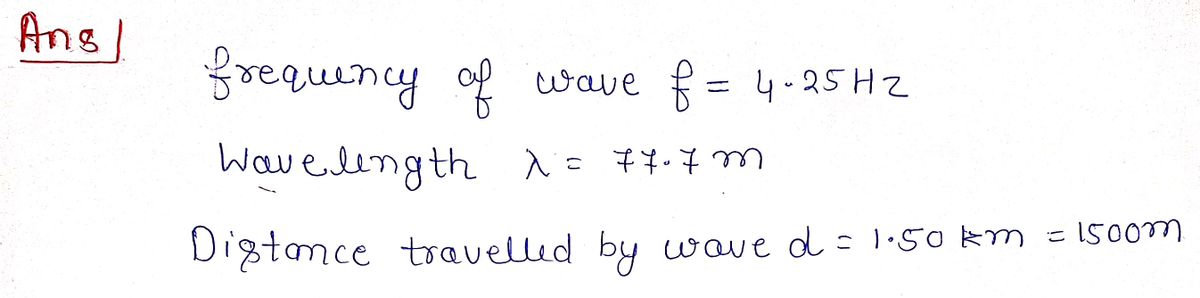 Ans
frequency of wave f = 4.25 Hz
Wavelength λ = 77.7 m
Distance travelled by wave d = 1.50 km = 1500m